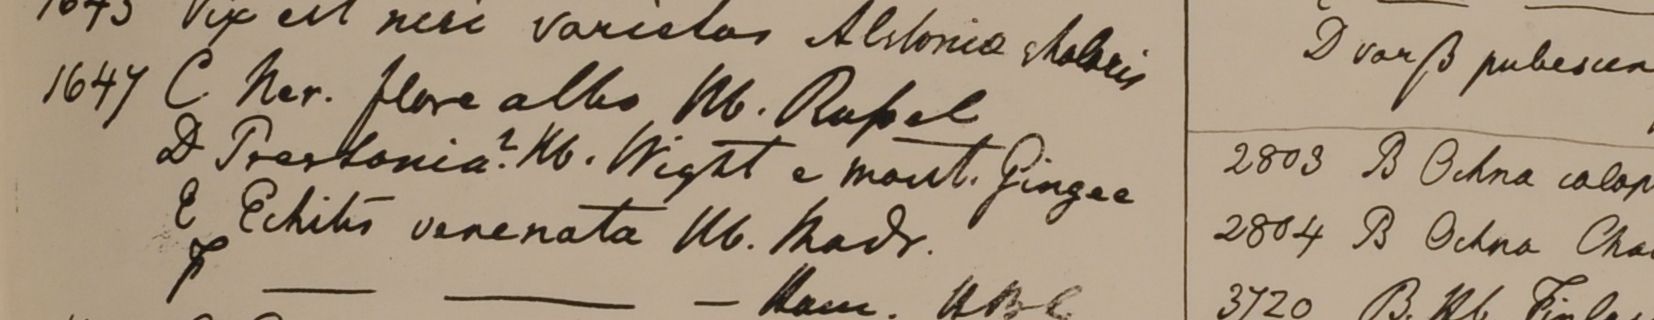 1643 Vix est nisi varietas Alstonia scholaris
1647 C Ner. flore albo Hb. Russel
D Prestonia? Hb. Wight e mont. Gingee
E Echites venenata Hb. Madr.
F — — — Ham. HBC
D var β pubescen
2803 B Ochna calop
2804 B Ochna Cha
3720 B. Hb. Finlay